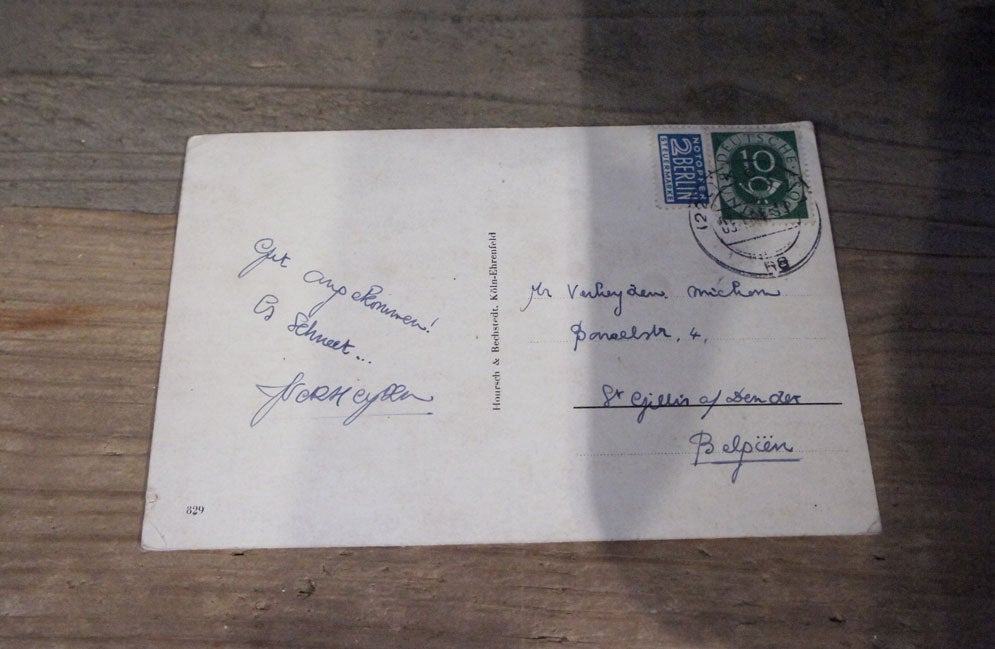 Gut angekommen!
Es schneet...
Verheyden
829
Hoursch & Bechstedt, Köln-Ehrenfeld
NOTOPFER
2 BERLIN
STEUERMARKE
DEUTSCHE
10
BUNDESPOST
(22
Mr Verheyden michem
4.
St Gillis a/ Dender
Belgïen